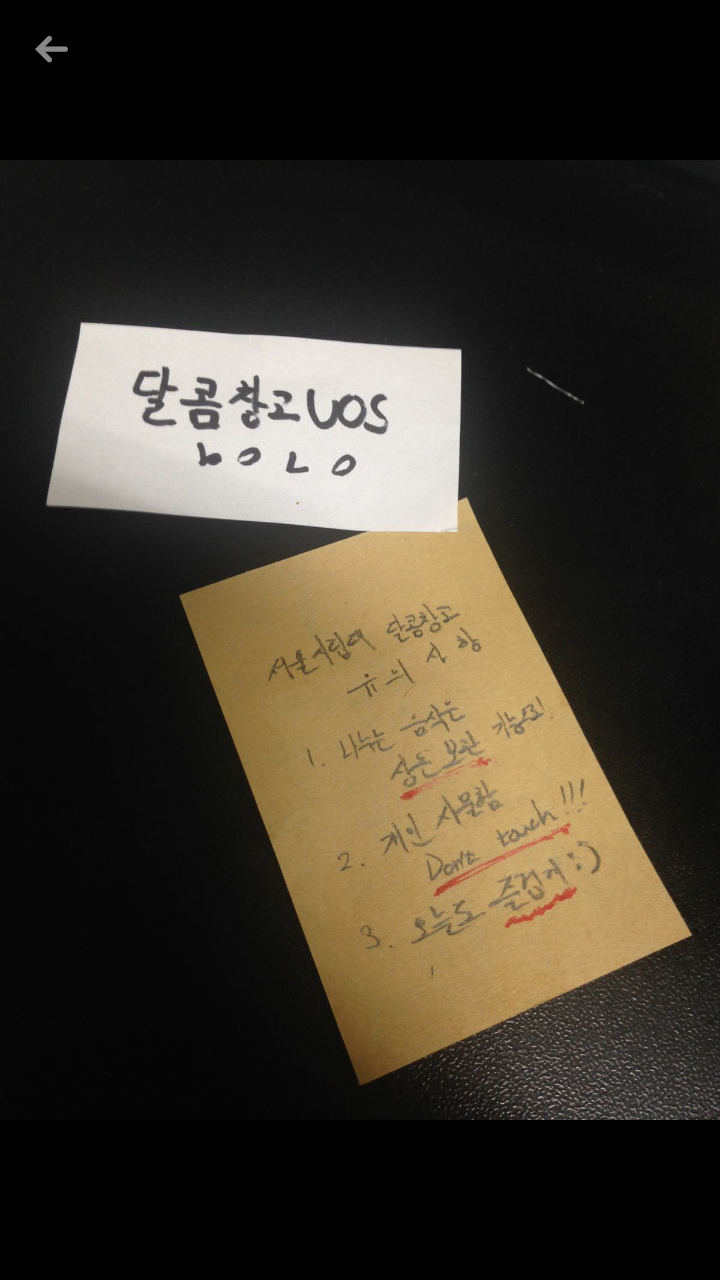 달콤창고 UOS
bOLO
서울시립대 달콤창고
유의사항
1. 나누는 음식은
상온보관 가능으로!
2. 개인 사물함
Don't touch!!!
3. 오늘도 즐겁게 :)